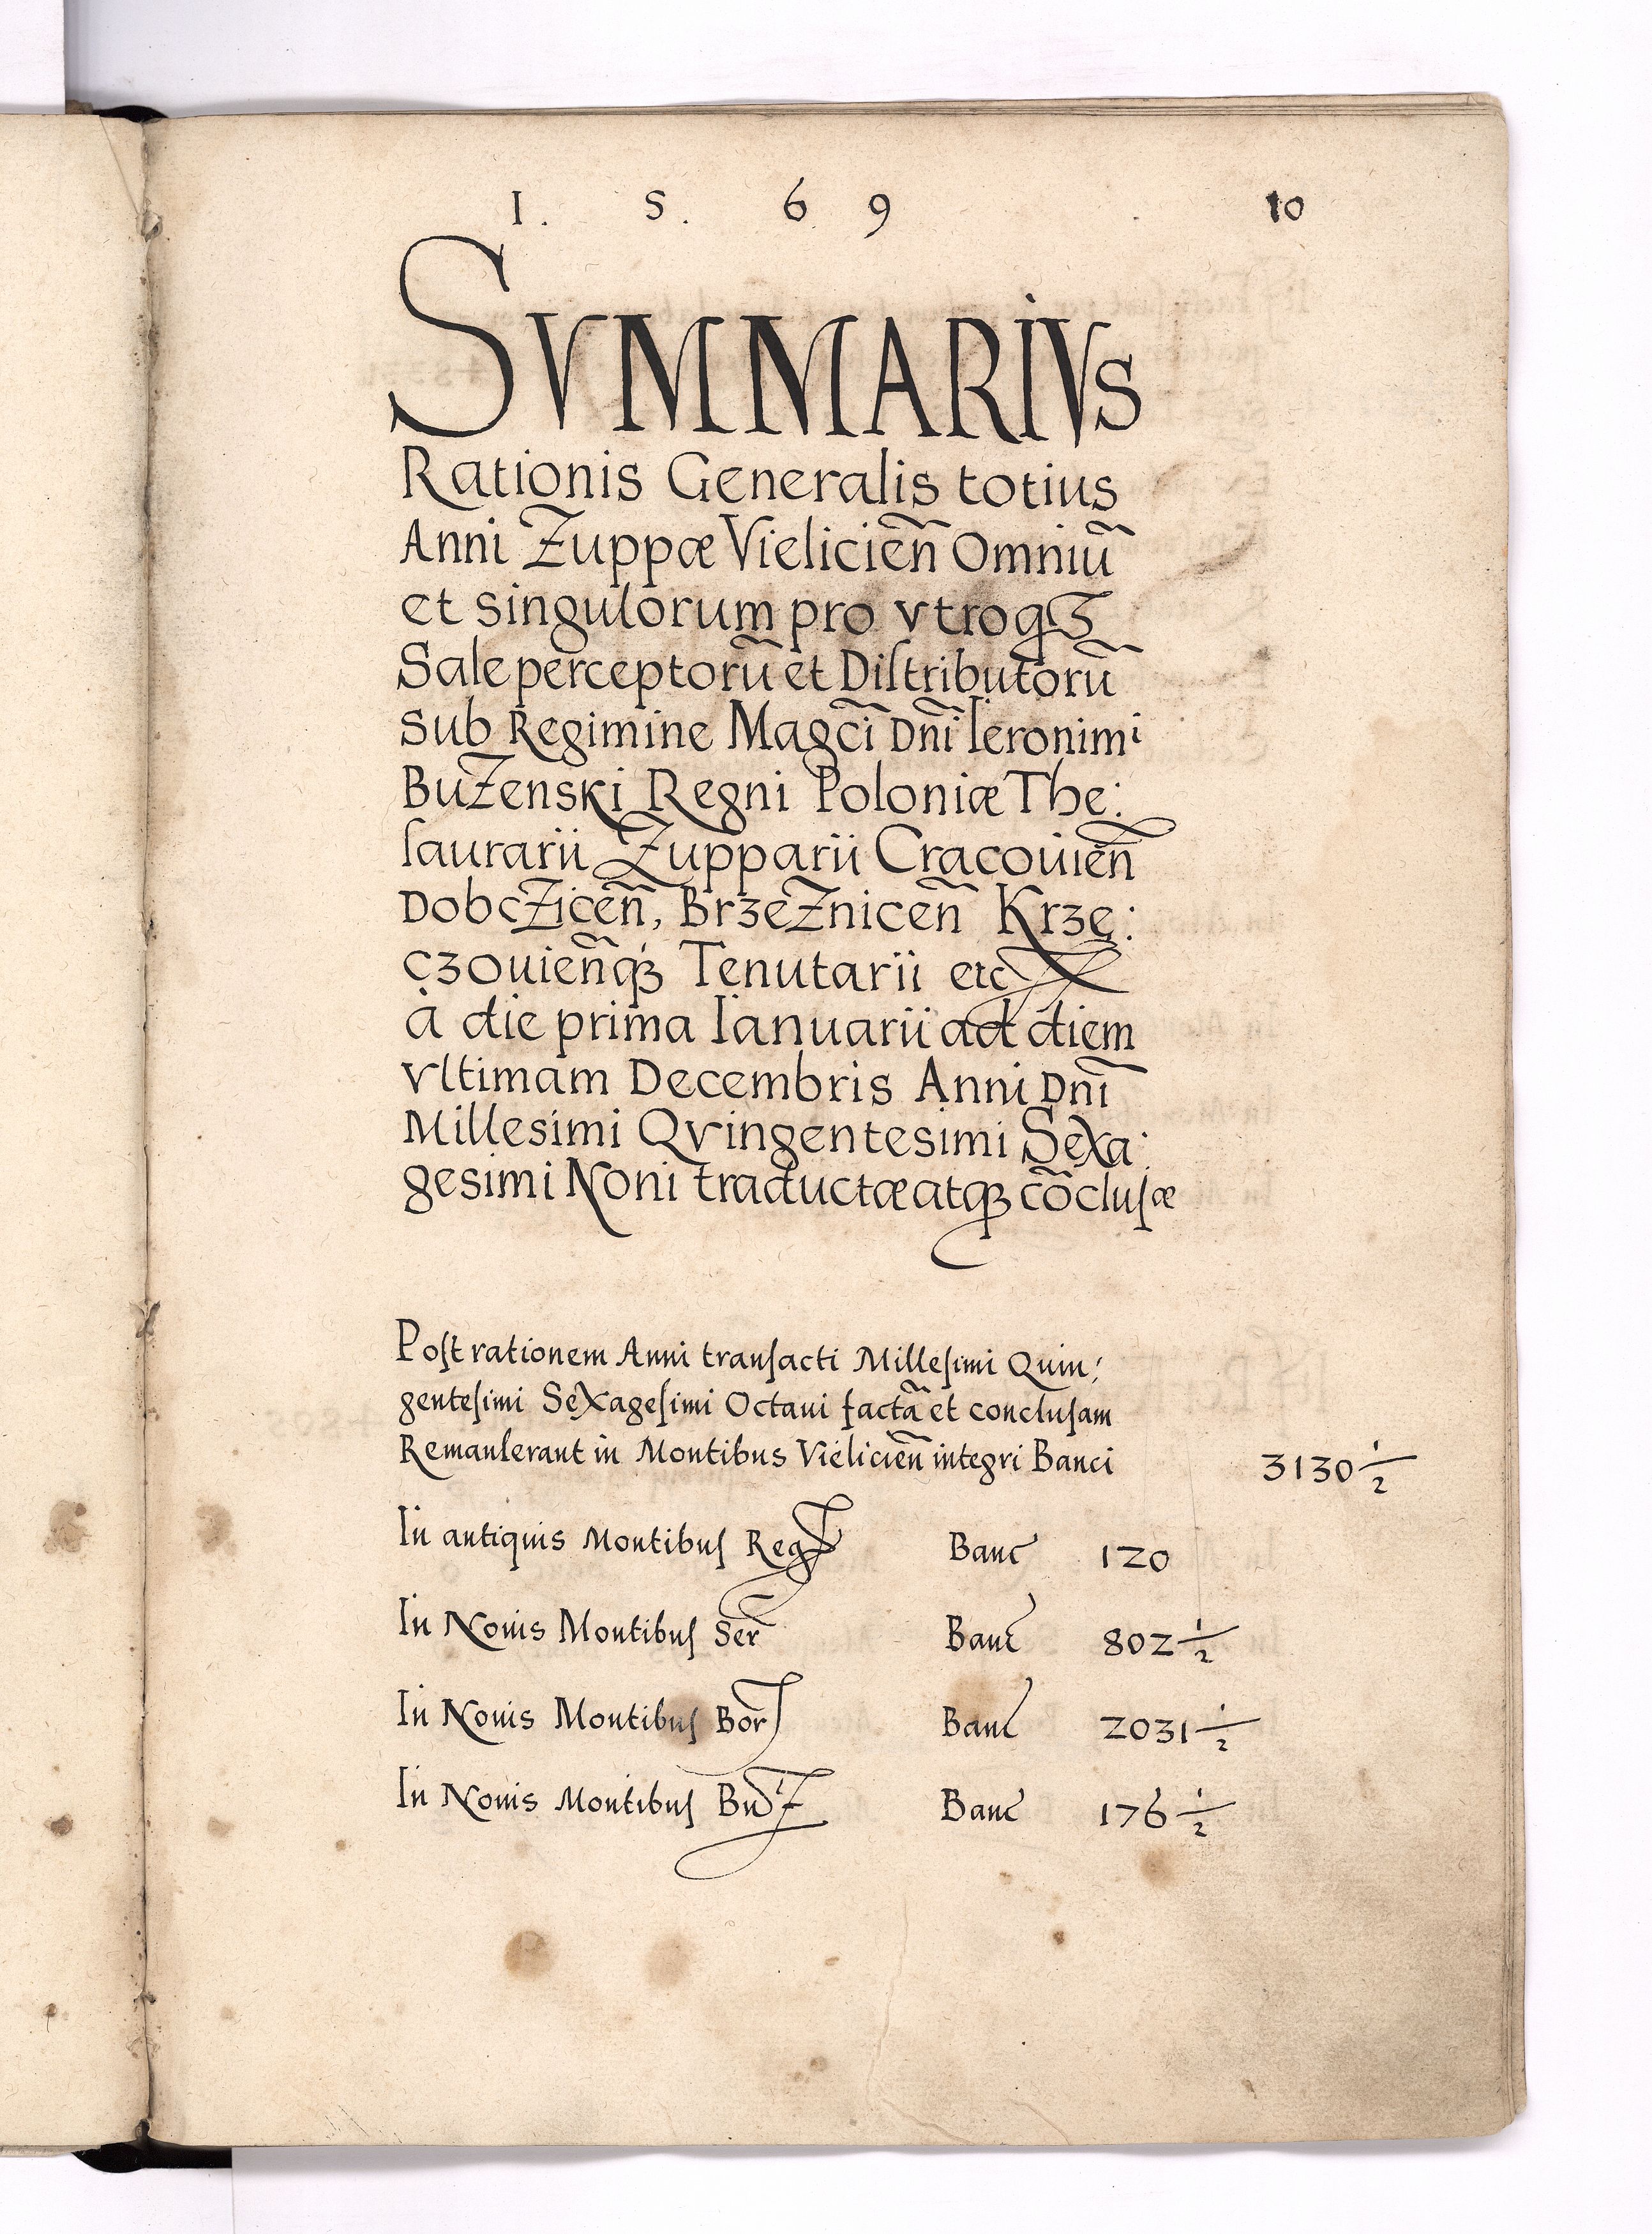 I. S. 6 9 10
SVMMARIVS
Rationis Generalis totius
Anni Zuppæ Vieliciẽn Omniũ
et singulorum pro vtroqꝫ
Sale perceptorũ et Diſtributorũ
sub Regimine Magc̃i Dñi Ieronimi
BuZenski Regni Poloniæ The:
ſaurarii Zupparii Cracouiẽn
DobcZicẽn, BrꝫeZnicẽn Krꝫę:
cꝫouieñqꝫ Tenutarii etc
à die prima Ianuarii ad diem
vltimam Decembris Anni Dñi
Millesimi Qvingentesimi Sexa:
gesimi Noni traductæ atqꝫ cõcluſæ
Poſt rationem Anni tranſacti Milleſimi Quin:
genteſimi Sexageſimi Octaui factã et concluſam
Remanſerant in Montibus Vieliciẽn integri Banci 3130 1/2
In antiquis Montibuſ Reg Banc 120
In Nouis Montibuſ Ser Banc 802 1/2
In Nouis Montibuſ Bor Banc 2031 1/2
In Nouis Montibuſ BuZ Banc 176 1/2